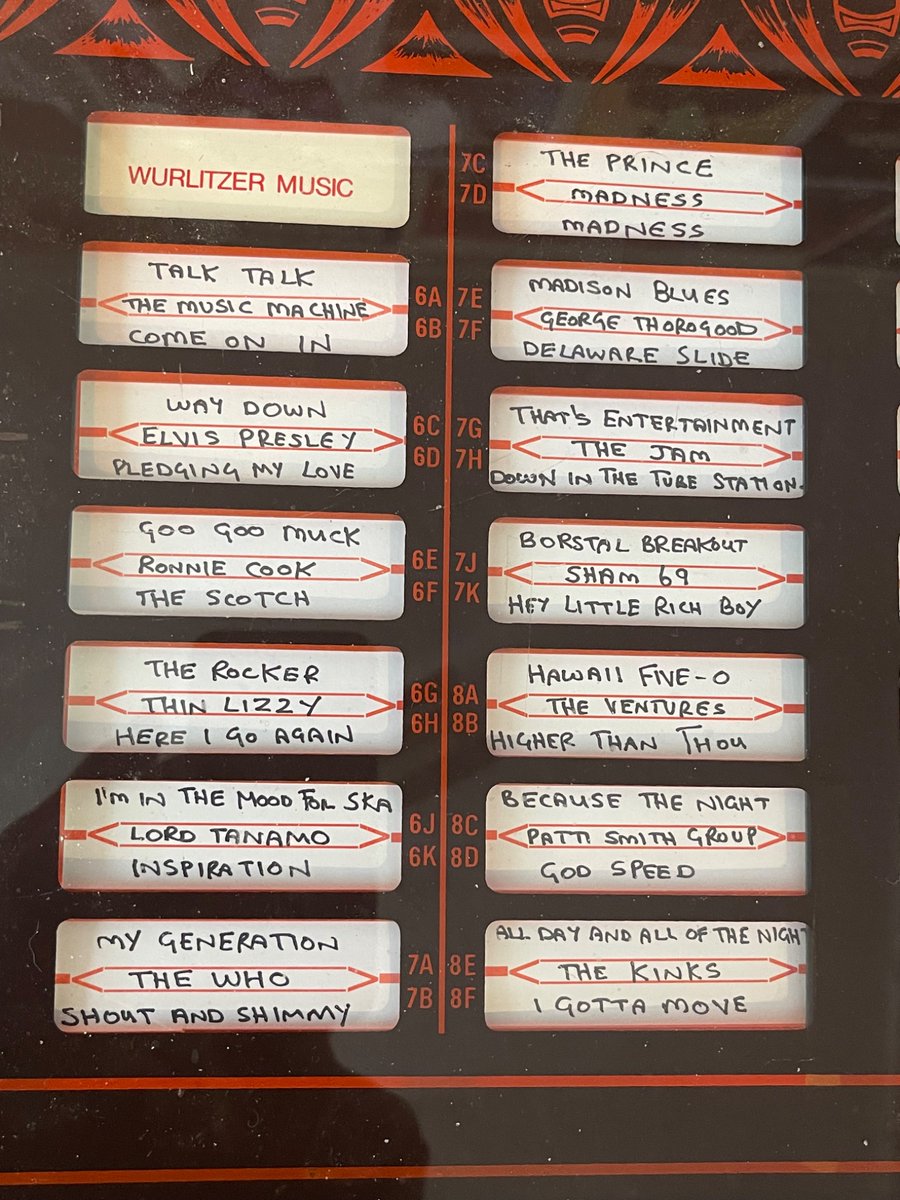 WURLITZER MUSIC
TALK TALK
THE MUSIC MACHINE
COME ON IN
6A
6B
WAY DOWN
ELVIS PRESLEY
PLEDGING MY LOVE
6C
6D
GOO GOO MUCK
RONNIE COOK
THE SCOTCH
6E
6F
THE ROCKER
THIN LIZZY
HERE I GO AGAIN
6G
6H
I'M IN THE MOOD FOR SKA
LORD TANAMO
INSPIRATION
6J
6K
MY GENERATION
THE WHO
SHOUT AND SHIMMY
7A
7B
7C
7D
THE PRINCE
MADNESS
MADNESS
7E
7F
MADISON BLUES
GEORGE THOROGOOD
DELAWARE SLIDE
7G
7H
THAT'S ENTERTAINMENT
THE JAM
DOWN IN THE TUBE STATION.
7J
7K
BORSTAL BREAKOUT
SHAM 69
HEY LITTLE RICH BOY
8A
8B
HAWAII FIVE-O
THE VENTURES
HIGHER THAN THOU
8C
8D
BECAUSE THE NIGHT
PATTI SMITH GROUP
GOD SPEED
8E
8F
ALL DAY AND ALL OF THE NIGHT
THE KINKS
I GOTTA MOVE